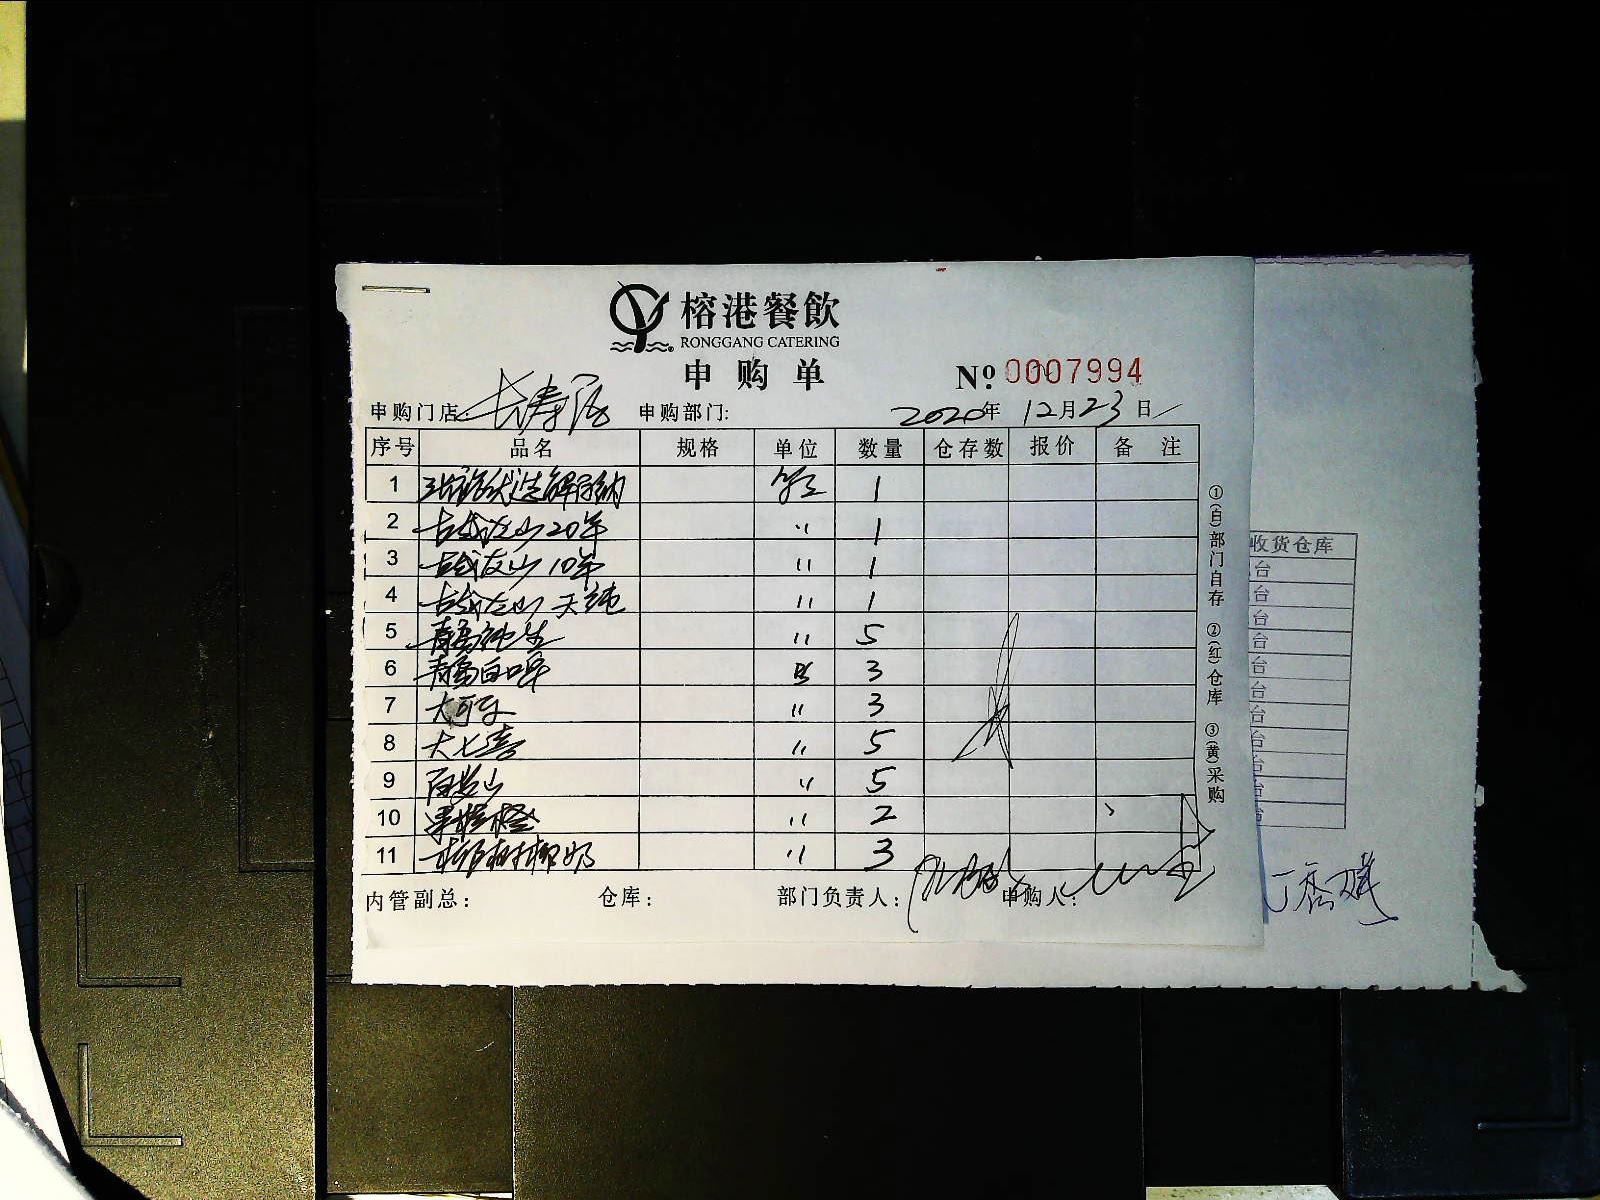 榕港餐飲
RONGGANG CATERING
申购单
№ 0007994
申购门店: 长寿路 申购部门: 2020年 12月23日
序号 品名 规格 单位 数量 仓存数 报价 备 注
1 张裕优选解百纳 箱 1
2 古越龙山20年 〃 1
3 古越龙山 10年 〃 1
4 古越龙山 天纯 〃 1
5 青岛纯生 〃 5
6 青岛白啤 3
7 大可乐 〃 3
8 大七喜 〃 5
9 百岁山 〃 5
10 果粒橙 〃 2
11 〃 3
内管副总: 仓库: 部门负责人: 申购人:
①(白)部门自存 ②(红)仓库 ③(黄)采购
收货仓库
台
台
台
台
台
台
台
台
台
台
台